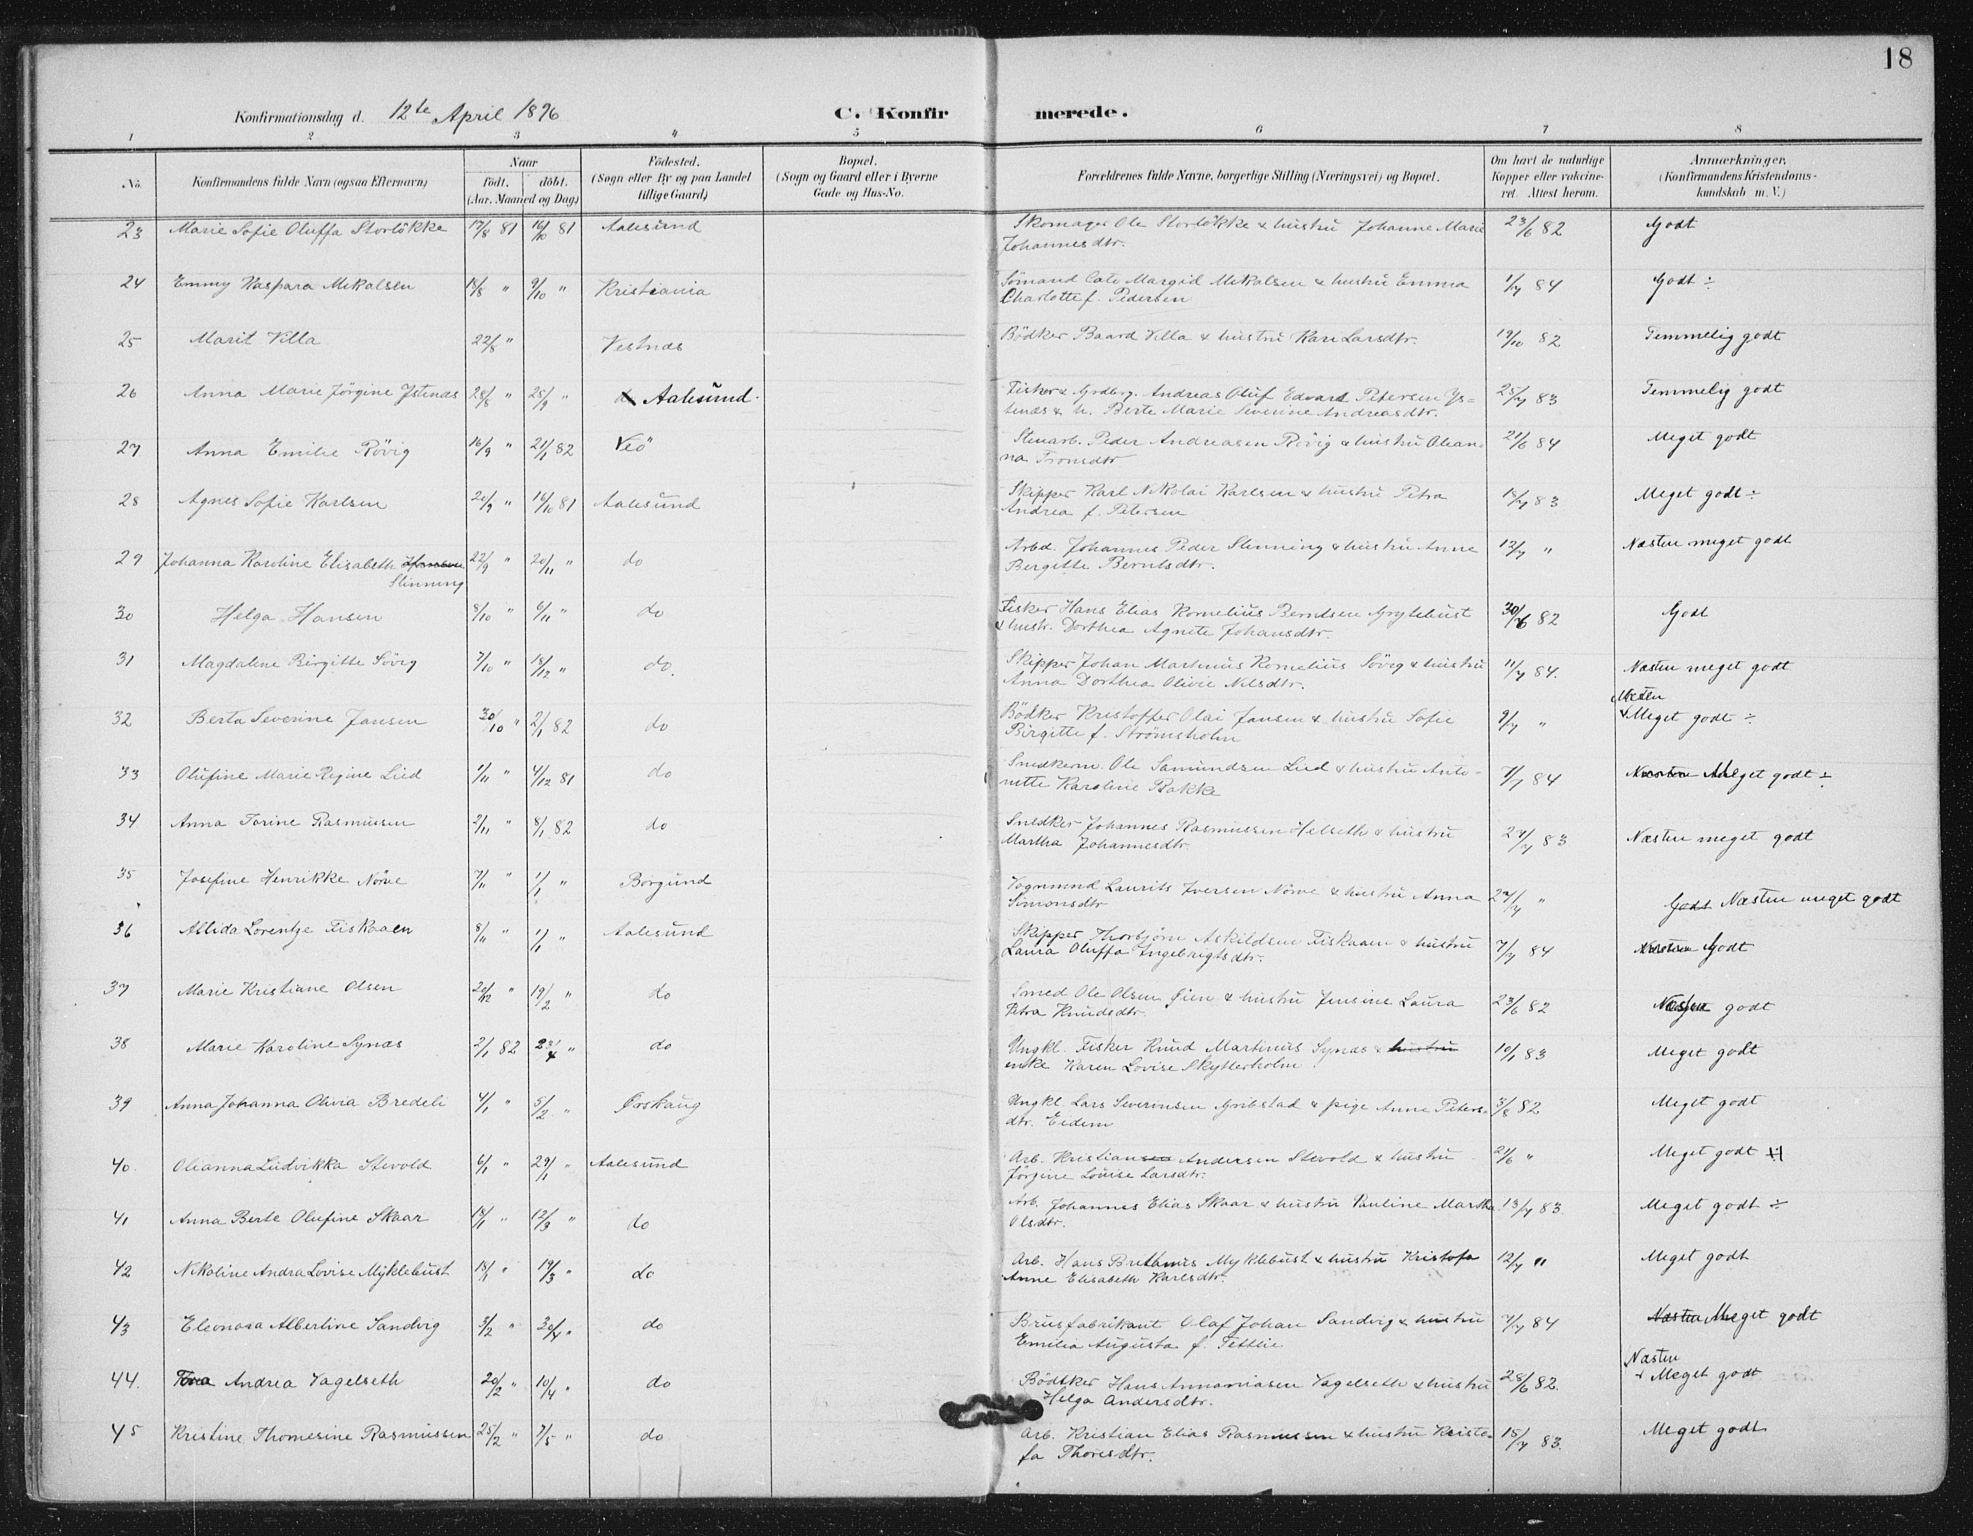 18
Konfirmationsdag d. 12te April 1896 C. Konfirmerede.
1 2 3 4 5 6 7 8
No. Konfirmandens fulde Navn (ogsaa Efternavn) Naar födt. döbt. (Aar. Maaned og Dag) Födested. (Sogn eller By og paa Landet tillige Gaard) Bopæl. (Sogn og Gaard eller i Byerne Gade og Hus-No. Forældrenes fulde Navne, borgerlige Stilling (Næringsvei) og Bopæl. Om havt de naturlige Kopper eller vaccineret. Attest herom. Anmærkninger. (Konfirmandens Kristendomskundskab m. V.)
23 Marie Sofie Oluffa Storlökke 17/8 81 16/10 81 Aalesund Skomager Ole Storlökke & hustru Johanne Marie 23/6 82 Godt
Johannesdtr.
24 Emmy Kaspara Mikalsen 18/8 " 9/10 " Kristiania Sömand Cato Margid Mikalsen & hustru Emma 1/7 84 Godt ÷
Charlotte f. Pedersen
25 Marit Villa 22/8 " Vestnæs Bödker Baard Villa & hustru Kari Larsdtr. 19/10 82 Temmelig godt
26 Anna Marie Jörgine Ystenæs 28/8 " 25/9 " Aalesund. Fisker & Grdbrg. Andreas Oluf Edvard Petersen Ys- 25/7 83 Temmelig godt
tenæs & h. Berte Marie Severine Andreasdtr.
27 Anna Emilie Rövig 16/9 " 21/1 82 Veö Stenarb. Peder Andreasen Rövig & hustru Olean- 21/6 84 Meget godt
na Tronsdtr
28 Agnes Sofie Karlsen 20/9 " 16/10 81 Aalesund Skipper Karl Nikolai Karlsen & hustru Petra 18/7 83 Meget godt ÷
Andrea f. Petersen
29 Johanna Karoline Elisabeth 22/9 " 20/11 " do Arbd. Johannes Peder Slinning & hustru Anne 12/7 " Næsten meget godt
Slinning Bergitte Berntsdtr.
30 Helga Hansen 8/10 " 6/11 " do Fisker Hans Elias Kornelius Berntsen Grytebust 30/6 82 Godt
& hustr. Dorthea Agnete Johansdtr.
31 Magdaline Birgitte Sövig 7/10 " 18/12 " do. Skipper Johan Martinus Kornelius Sövig & hustru 11/7 84. Næsten meget godt
Anna Dorthea Olivie Nilsdtr.
Næsten
32 Berta Severine Jansen 30/10 " 2/1 82 do Bödker Kristoffer Olai Jansen & hustru Sofie 9/7 " Meget godt ÷
Birgitte f. Strömsholm
33 Olufine Marie Regine Lied 1/11 " 4/12 81 do Snedkerm. Ole Samundsen Lied & hustru Anto- 7/7 84 Næsten Meget godt ÷
nette Karoline Bakke
34 Anna Torine Rasmussen 2/11 " 8/1 82 do Snedker Johannes Rasmussen Helseth & hustru 27/7 83 Næsten meget godt
Martha Johannesdtr.
35 Josefine Henrikke Nörve 7/11 " 1/1 " Borgund Vognmnd Laurits Iversen Nörve & hustru Anna 27/7 " Godt Næsten meget godt
Simonsdtr
36 Allida Lorentze Fiskaaen 8/11 " 1/1 " Aalesund Skipper Thorbjörn Askildsen Fiskaaen & hustru 7/7 84 Næsten Godt
Laura Oluffa Ingebrigtsdtr.
37 Marie Kristiane Olsen 20/12 " 19/2 " do Smed Ole Olsen Öien & hustru Jensine Laura 23/6 82 Næsten godt
Petra Knudsdtr.
38 Marie Karoline Synæs 2/1 82 23/4 " do Ungkl. Fisker Knud Martinus Synæs & hustru 10/1 83 Meget godt
enke Karen Lovise Skytterholm
39 Anna Johanna Olivia Bredeli 4/1 " 5/2 " Ørskaug Ungkl. Lars Severinsen Gribstad & pige Anne Peters- 3/8 82 Meget godt
dtr. Eidem
40. Olianna Ludvikka Stevold 6/1 " 29/1 " Aalesund Arb. Kristian Andersen Stevold & hustru 21/6 " Meget godt
Jörgine Louise Larsdtr.
41 Anna Berte Olufine Skaar 13/1 " 12/3 " do Arb. Johannes Elias Skaar & hustru Pauline Martha 13/7 83. Meget godt ÷
Olsdtr.
42 Nikoline Andra Lovise Myklebust 18/1 " 19/3 " do Arb. Hans Myklebust & hustru Kristofa 12/7 " Meget godt
Anne Elisabeth Karlsdtr.
43 Eleonora Albertine Sandvig 3/2 " 30/4 " do Brusfabrikant Olaf Johan Sandvig & hustru 7/7 84 Næsten Meget godt
Emilia Augusta f. Tettlie
Næsten
44. Andrea Vagelseth 20/2 " 10/4 " do Bödtker Hans Annaniasen Vagelseth & hustru 28/6 82. Meget godt
Helga Andersdtr.
45 Kristine Thomesine Rasmussen 25/2 " 7/5 " do Arb. Kristian Elias Rasmussen & hustru Kristo- 18/7 83. Meget godt
fa Thoresdtr.